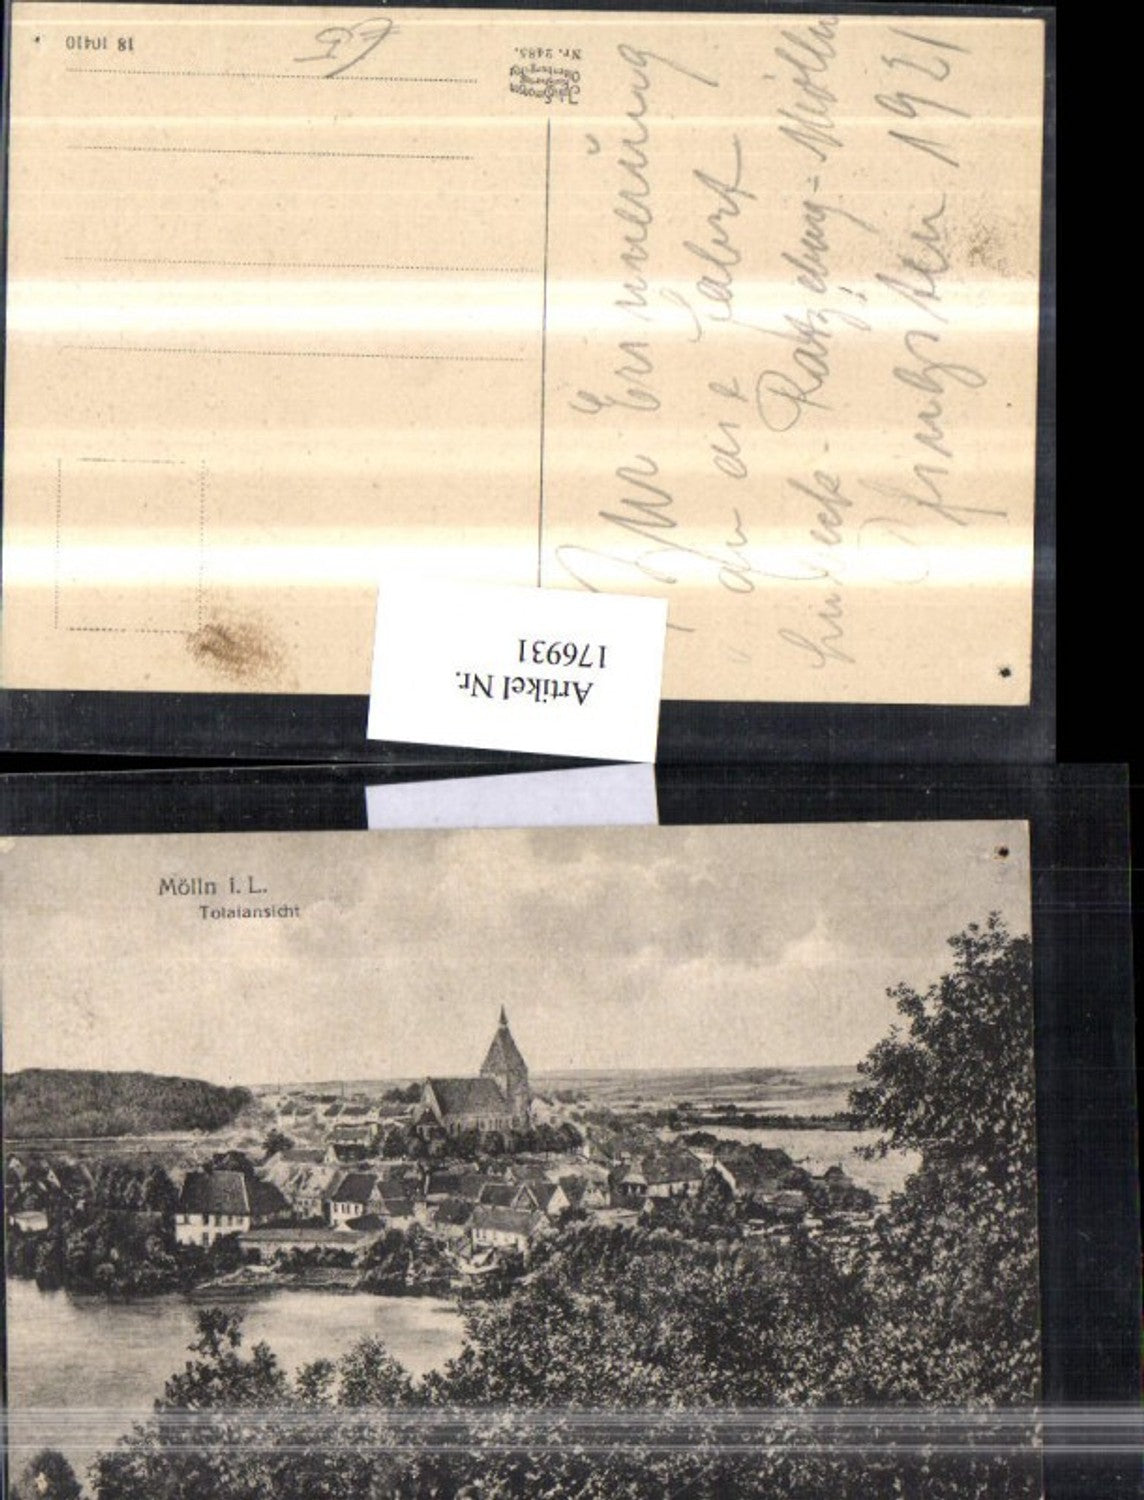 18 10410
Nr. 2485.
Zur Erinnerung
an die Fahrt
Lübeck - Ratzeburg - Mölln
Pfingsten 1921
Artikel Nr.
176931
Mölln i. L.
Totalansicht